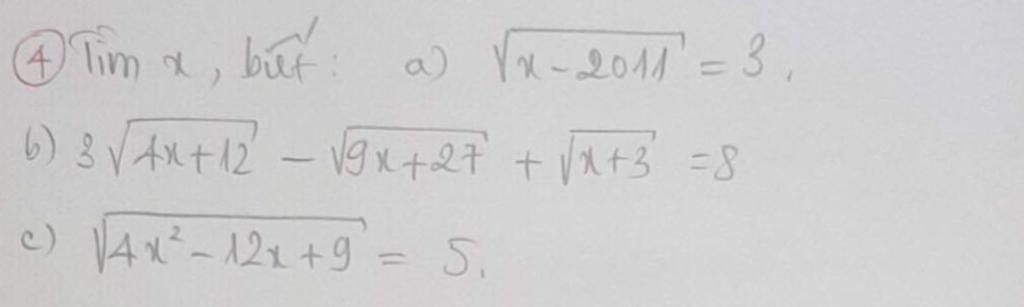 ④ Tìm x, biết: a) √(x-2011) = 3.
b) 3√(4x+12) - √(9x+27) + √(x+3) = 8
c) √(4x²-12x+9) = 5.